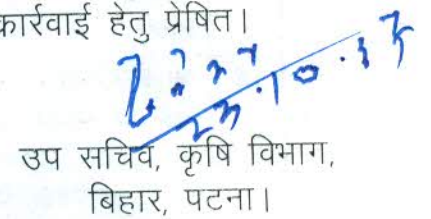 कार्रवाई हेतु प्रेषित।
उप सचिव, कृषि विभाग,
बिहार, पटना।